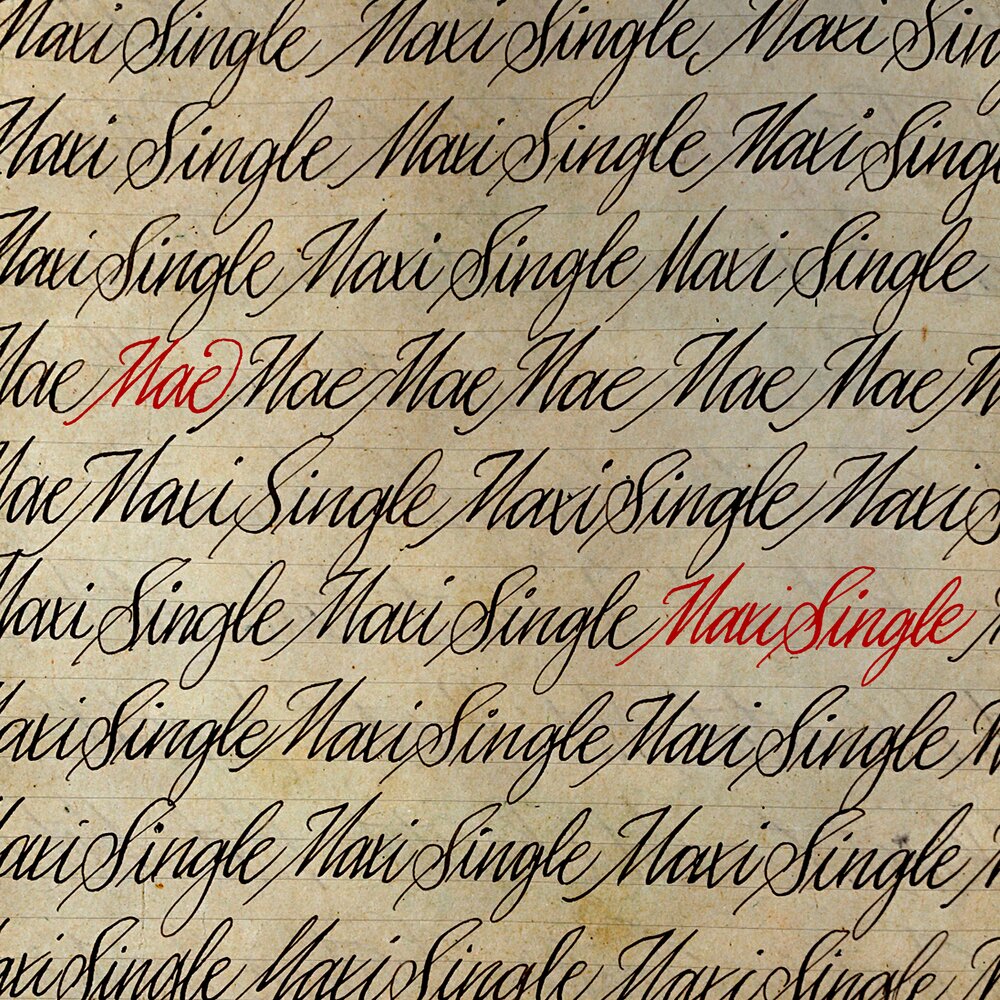 Maxi Single Maxi Single Maxi Sing
Maxi Single Maxi Single Maxi Singl
Maxi Single Maxi Single Maxi Single
Mae Mae Mae Mae Mae Mae Mae
Mae Maxi Single Maxi Single Maxi S
Maxi Single Maxi Single Maxi Single
Maxi Single Maxi Single Maxi Single
Maxi Single Maxi Single Maxi Single
Maxi Single Maxi Single Maxi Single